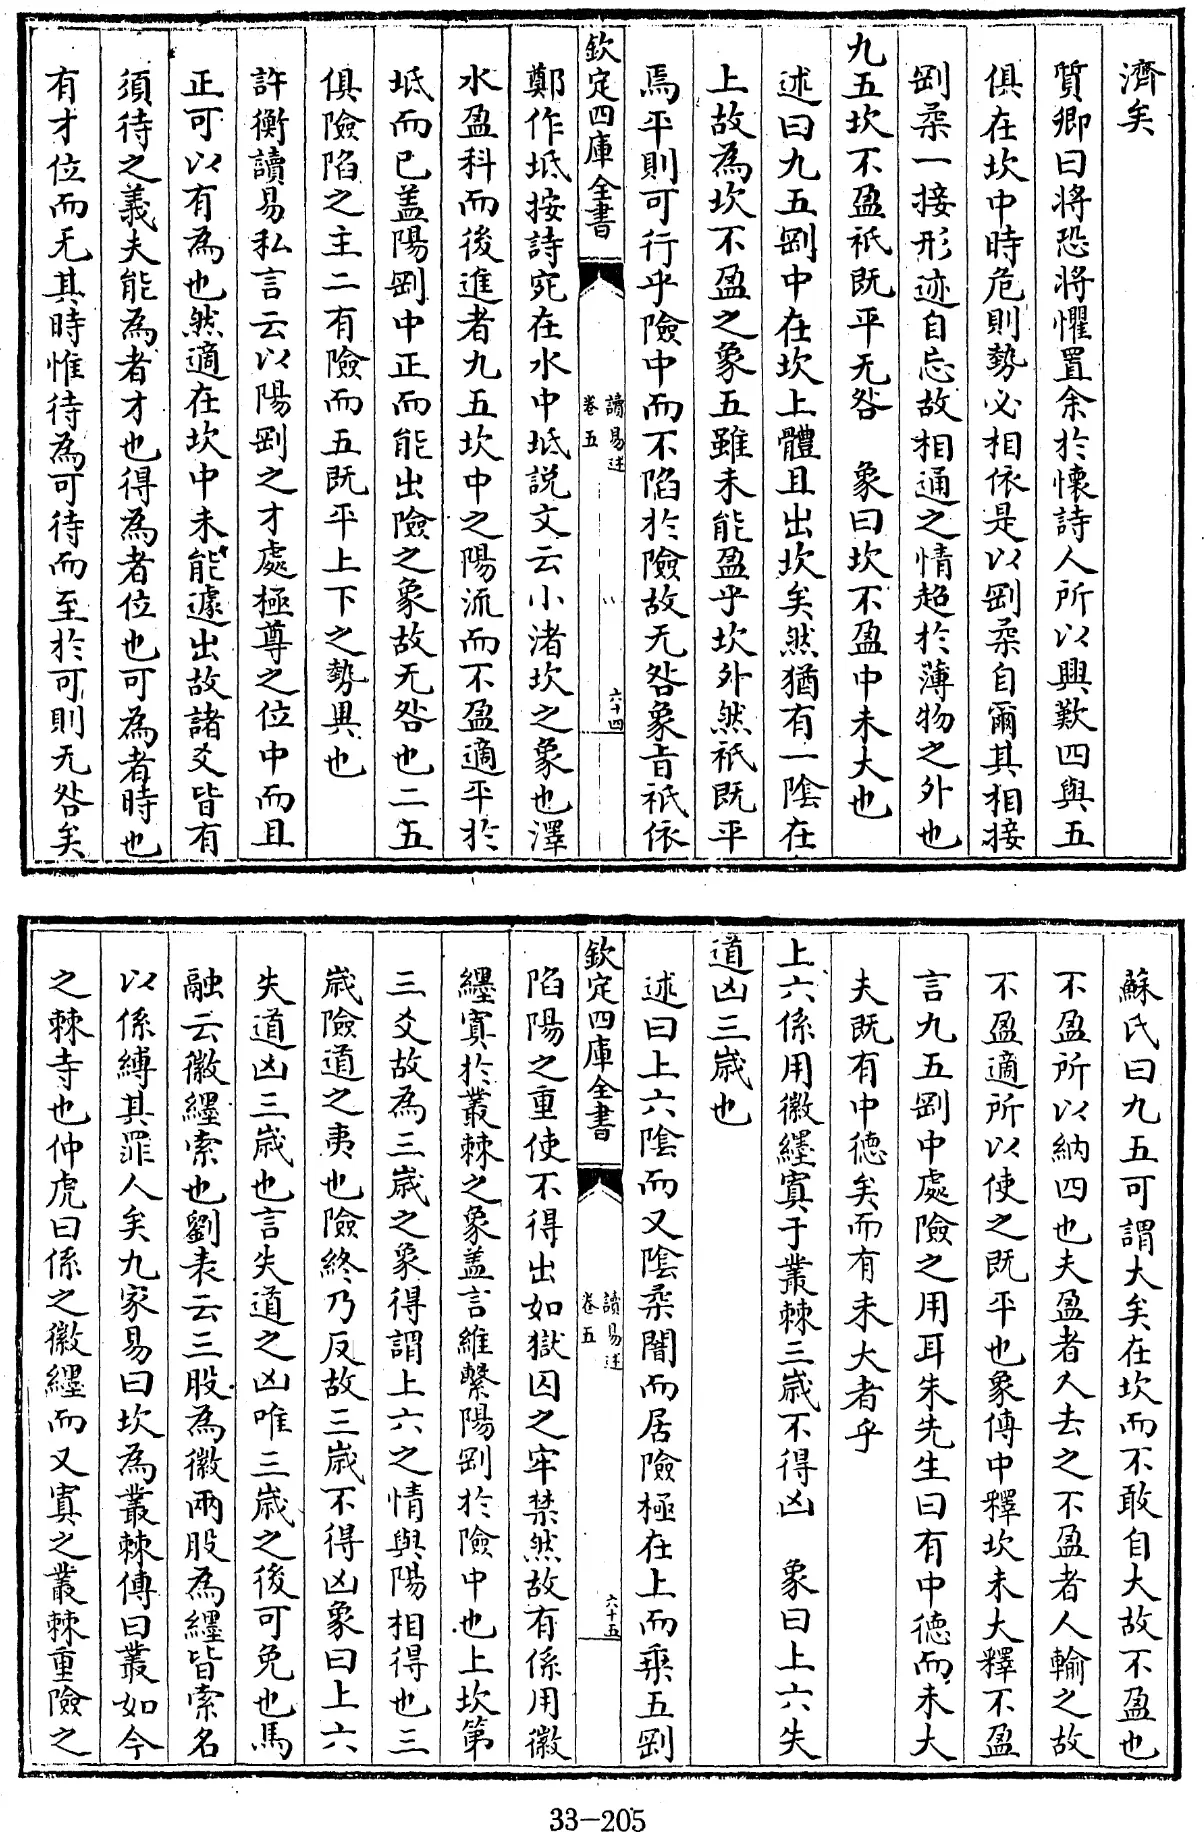 濟矣
質卿曰將恐將懼置余於懷詩人所以興歎四與五
俱在坎中時危則勢必相依是以剛柔自爾其相接
剛柔一接形迹自忘故相通之情超於薄物之外也
九五坎不盈祇既平无咎　象曰坎不盈中未大也
述曰九五剛中在坎上體且出坎矣然猶有一隂在
上故為坎不盈之象五雖未能盈乎坎外然祇既平
焉平則可行乎險中而不陷於險故无咎象旨祇依
欽定四庫全書
讀易述
卷五
六十四
鄭作坻按詩宛在水中坻説文云小渚坎之象也澤
水盈科而後進者九五坎中之陽流而不盈適平於
坻而已盖陽剛中正而能出險之象故无咎也二五
俱險陷之主二有險而五既平上下之勢異也
許衡讀易私言云以陽剛之才處極尊之位中而且
正可以有為也然適在坎中未能遽出故諸爻皆有
須待之義夫能為者才也得為者位也可為者時也
有才位而无其時惟待為可待而至於可則无咎矣
蘇氏曰九五可謂大矣在坎而不敢自大故不盈也
不盈所以納四也夫盈者人去之不盈者人輸之故
不盈適所以使之既平也象傳中釋坎未大釋不盈
言九五剛中處險之用耳朱先生曰有中德而未大
夫既有中德矣而有未大者乎
上六係用徽纆寘于叢棘三歲不得凶　象曰上六失
道凶三歲也
述曰上六隂而又隂柔闇而居險極在上而乘五剛
欽定四庫全書
讀易述
卷五
六十五
陷陽之重使不得出如獄囚之牢禁然故有係用徽
纆寘於叢棘之象盖言維繫陽剛於險中也上坎第
三爻故為三歲之象得謂上六之情與陽相得也三
歲險道之夷也險終乃反故三歲不得凶象曰上六
失道凶三歲也言失道之凶唯三歲之後可免也馬
融云徽纆索也劉表云三股為徽兩股為纆皆索名
以係縛其罪人矣九家易曰坎為叢棘傳曰叢如今
之棘寺也仲虎曰係之徽纆而又寘之叢棘重險之
33-205